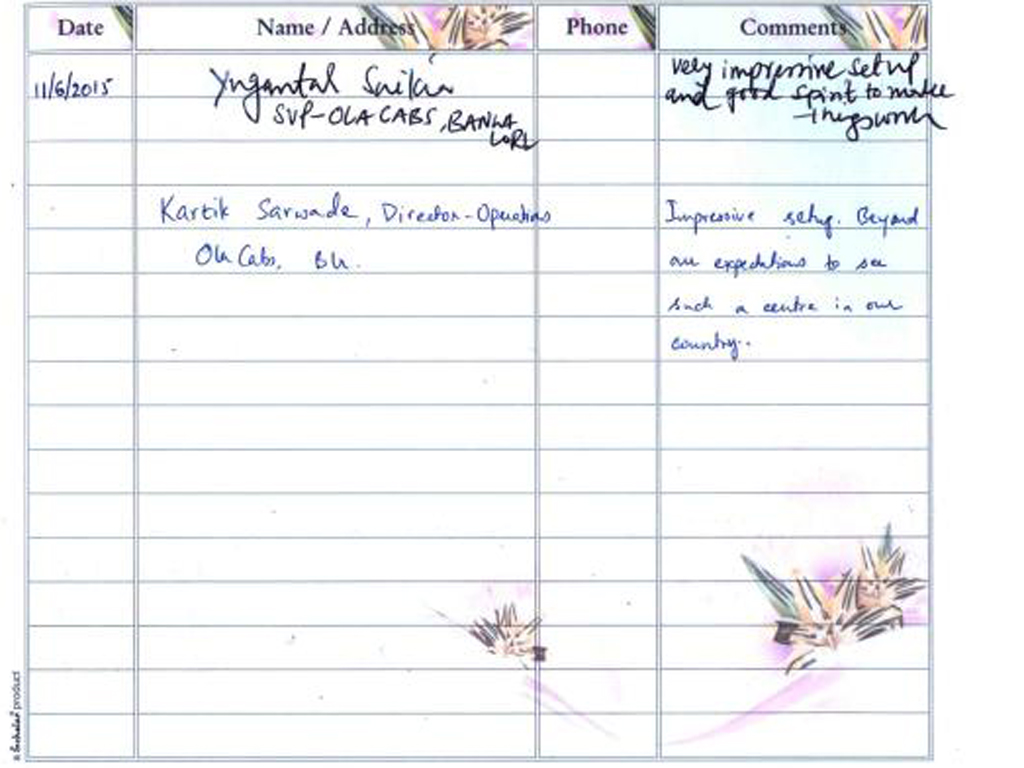 Date Name / Address Phone Comments
11/6/2015 Yugantal Saikia
SVP-OLA CABS, BANGA
LORE
very impressive setup
and good spirit to make
things work
Kartik Sarwade, Director-Operations
Ola Cabs, Blr.
Impressive setup. Beyond
our expectations to see
such a centre in our
country..
a Scholar product